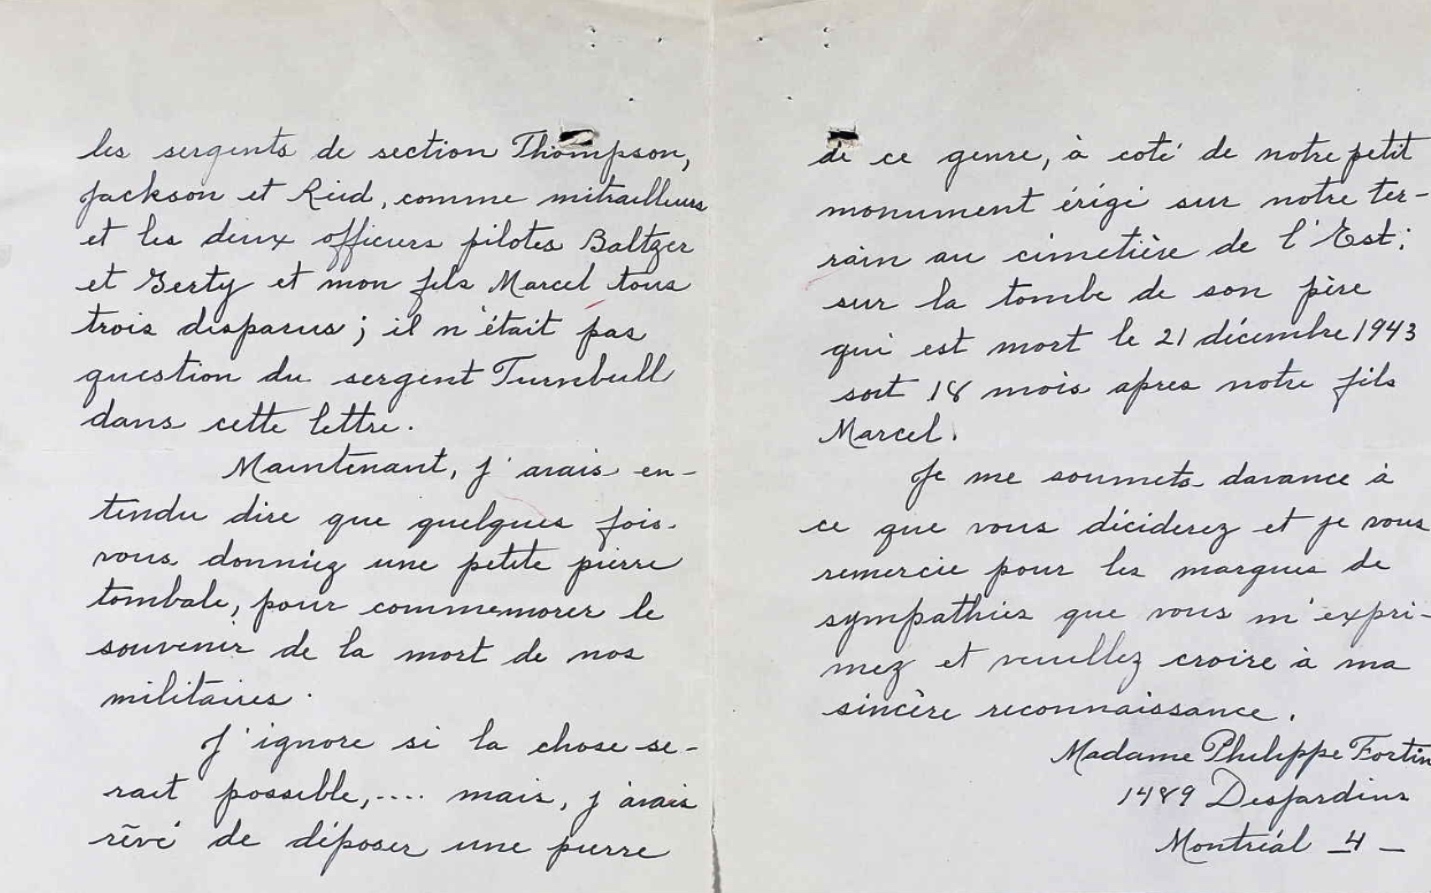 les sergents de section Thompson,
Jackson et Reid, comme mitrailleurs
et les deux officiers pilotes Baltzer
et Gerty et mon fils Marcel tous
trois disparus; il n'était pas
question du sergent Turnbull
dans cette lettre.
Maintenant, j'avais en-
tendu dire que quelques fois
vous donniez une petite pierre
tombale, pour commemorer le
souvenir de la mort de nos
militaires.
J'ignore si la chose se-
rait possible,.... mais, j'avais
rêvé de déposer une pierre
de ce genre, à coté de notre petit
monument érigé sur notre ter-
rain au cimetière de l'Est;
sur la tombe de son père
qui est mort le 21 décembre 1943
soit 18 mois apres notre fils
Marcel.
Je me soumets davance à
ce que vous déciderez et je vous
remercie pour les marques de
sympathies que vous m'expri-
mez et veuillez croire à ma
sincère reconnaissance.
Madame Philippe Fortin
1489 Desjardins
Montréal -4-